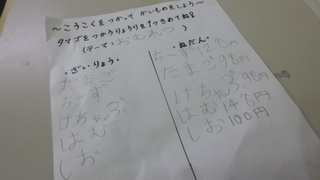 ～こうこくをつかって かいものをしよう～
タマゴをつかうりょうりを1つきめてね♀
(テーマ・おむれつ)
・ざい・りょう。
たまご
ちーず
けちゃっぷ
はむ
しお
・ねだん。
ちーず128円
たまご98円
けちゃっぷ98円
はむ148円
しお100円